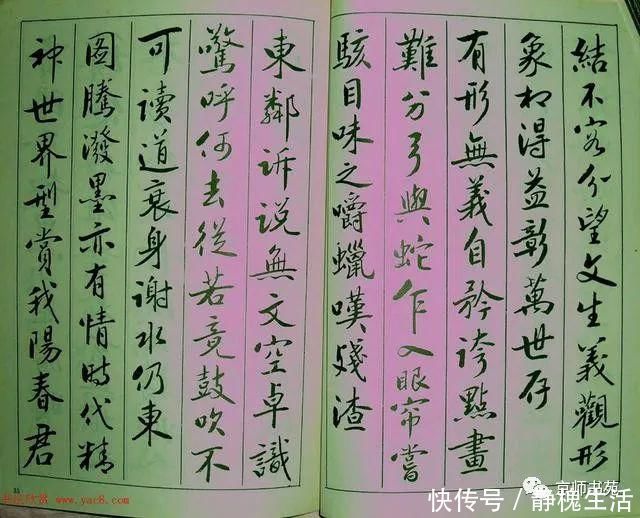 結不容分望文生義觀形
象相得益彰萬世存
有形無義自矜誇點畫
難分弓與蛇乍入眼帘嘗
駭目味之嚼蠟嘆殘渣
東鄰訴說無文空卓識
驚呼何去從若竟鼓吹不
可讀道衰身謝水仍東
圖騰潑墨亦有情時代精
神世界型賞我陽春君
书法欣赏 www.yac8.com
京师书苑
快传号/静槐生活